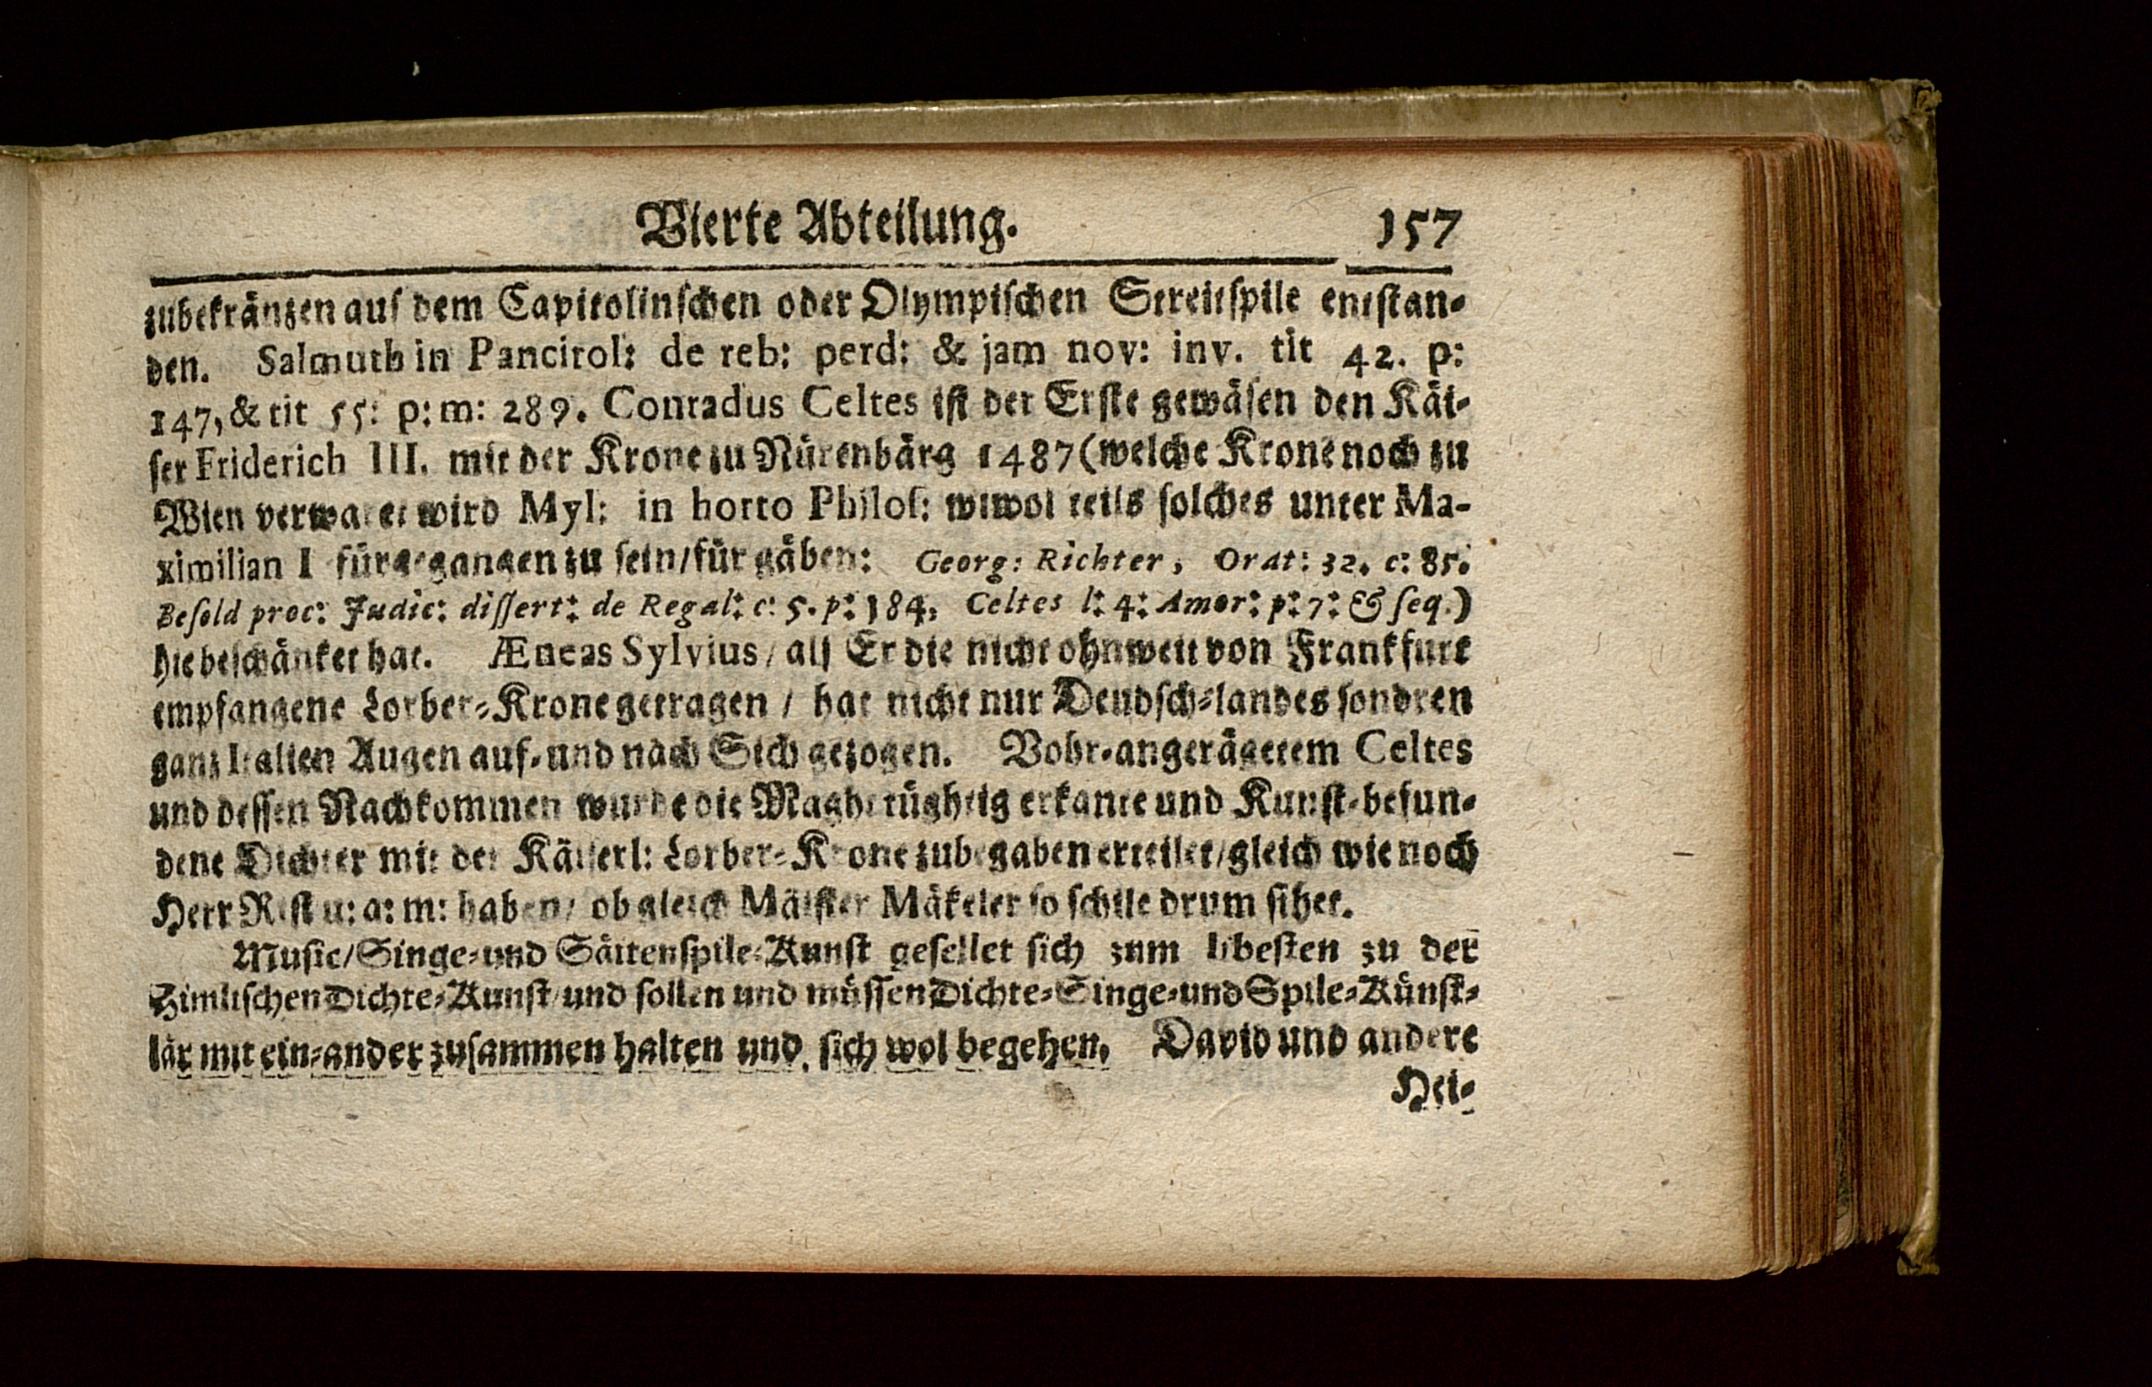 Vierte Abteilung. 157
zubekränzen aus dem Capitolinschen oder Olympischen Streitspile entstan⸗
den. Salmuth in Pancirol: de reb: perd: & jam nov: inv. tit 42. p:
147, & tit 55: p: m: 289. Conradus Celtes ist der Erste gewäsen den Käi⸗
ser Friderich III. mit der Krone zu Nürenbärg 1487 (welche Krone noch zu
Wien verwaret wird Myl: in horto Philos: wiwol teils solches unter Ma-
ximilian I fürgegangen zu sein / für gäben: Georg: Richter, Orat: 32. c: 85.
Besold proc: Judic: dissert: de Regal: c: 5. p: 184, Celtes l: 4: Amor: p: 7: & seq.)
hiebeschänket hat. Æneas Sylvius / als Er die nicht ohnweit von Frankfurt
empfangene Lorber⸗Krone getragen / hat nicht nur Deudsch⸗landes sondren
ganz Italien Augen auf⸗ und nach Sich gezogen. Vohr⸗angerägetem Celtes
und dessen Nachkommen wurde die Maght tüghtig erkante und Kunst⸗befun⸗
dene Dichter mit der Käiserl: Lorber⸗Krone zubegaben erteilet / gleich wie noch
Herr Rist u: a: m: haben / ob gleich Mäister Mäkeler so schile drum sihet.
Music / Singe⸗ und Säitenspile⸗Kunst gesellet sich zum libesten zu der
Himlischen Dichte⸗Kunst / und sollen und müssen Dichte⸗Singe⸗und Spile⸗Künst⸗
lär mit ein⸗ander zusammen halten und sich wol begehen, David und andere
Hei⸗